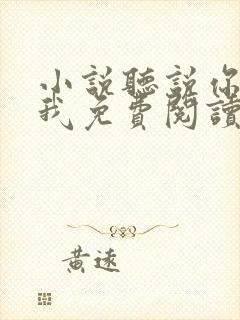 小說聽說你
我免費閱讀
黃遠